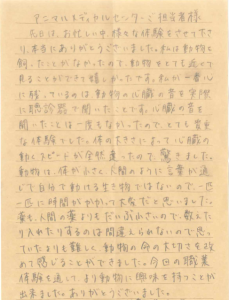 アニマルメディカルセンターご担当者様
先日は、お忙しい中、様々な体験をさせて下さ
り、本当にありがとうございました。私は動物を
飼ったことがなかったので、動物をとても近くで
見ることができて嬉しかったです。私が一番心
に残っているのは、動物の心臓の音を実際
に聴診器で聞いたことです。心臓の音を
聞いたことは一度もなかったので、とても貴重
な体験でした。体の大きさによって心臓の
動くスピードが全然違ったので驚きました。
動物は、体が小さく人間のように言葉が通
じて自分で動ける生き物ではないので、一匹
一匹に時間がかかって大変だと思いました。
薬も、人間の薬よりもだいぶ小さいので、数えた
り入れたりするのは間違えられないので思っ
ていたよりも難しく、動物の命の大切さを改
めて感じることができました。今回の職業
体験を通して、より動物に興味を持つことが
出来ました。ありがとうございました。